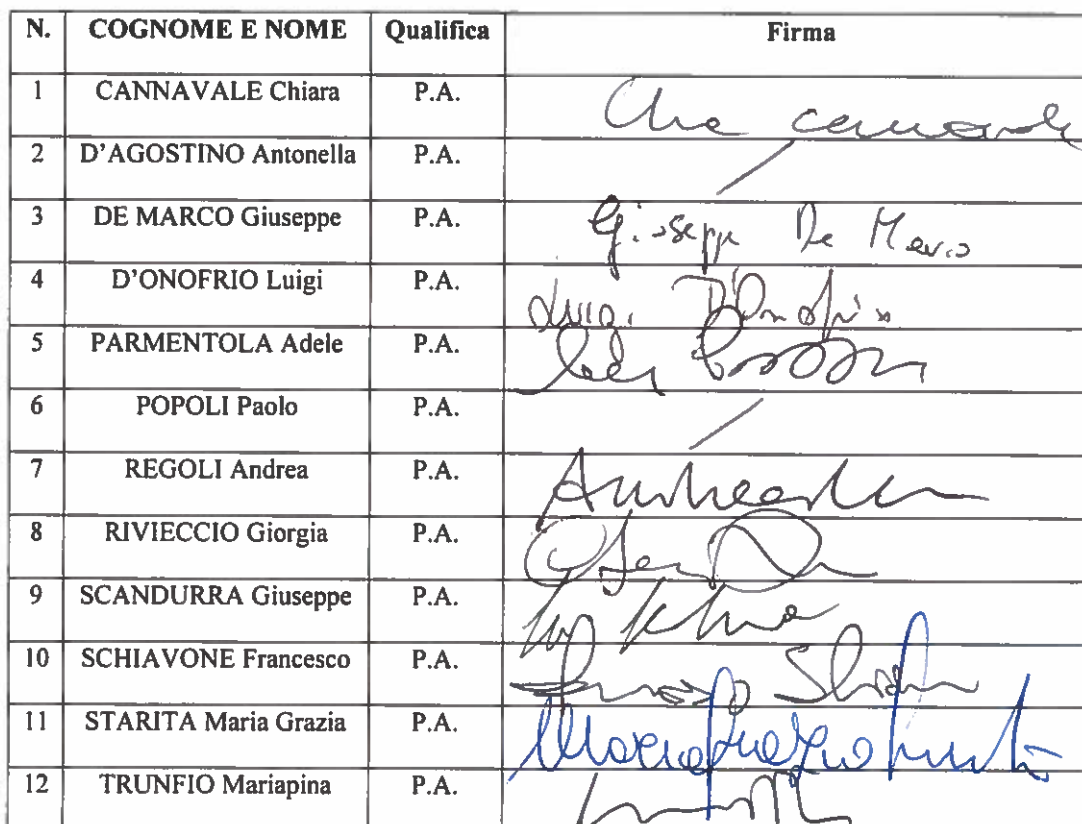 N. COGNOME E NOME Qualifica Firma
1 CANNAVALE Chiara P.A.
2 D'AGOSTINO Antonella P.A. /
3 DE MARCO Giuseppe P.A. Giuseppe De Marco
4 D'ONOFRIO Luigi P.A. Luigi D'Onofrio
5 PARMENTOLA Adele P.A.
6 POPOLI Paolo P.A. /
7 REGOLI Andrea P.A.
8 RIVIECCIO Giorgia P.A.
9 SCANDURRA Giuseppe P.A.
10 SCHIAVONE Francesco P.A.
11 STARITA Maria Grazia P.A.
12 TRUNFIO Mariapina P.A.